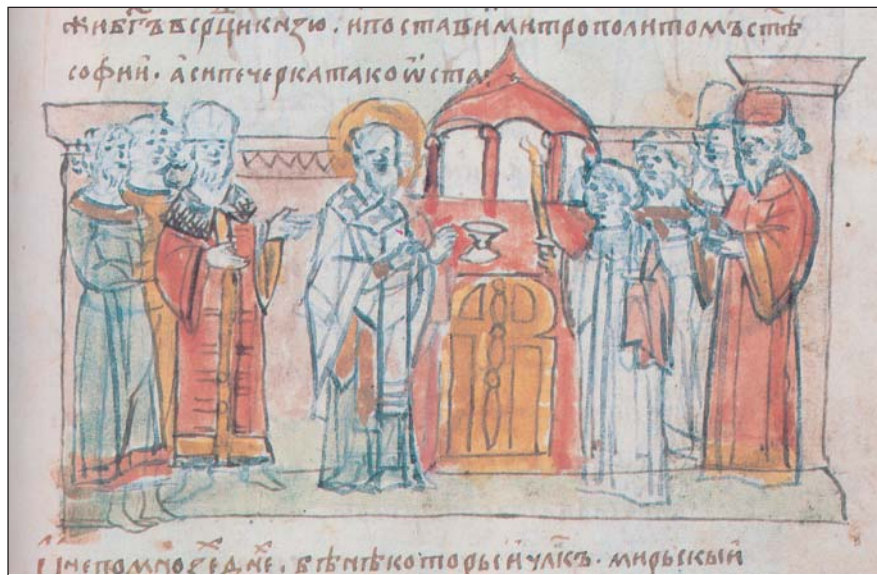 жи бг҃ъ в срци кн҃зю . и постави и митрополитомъ ст҃ѣ
софии . а си печерка тако ѡста :
И не по мнозе дн҃е . бѣ нѣкоторыи чл҃къ . мирьскыи